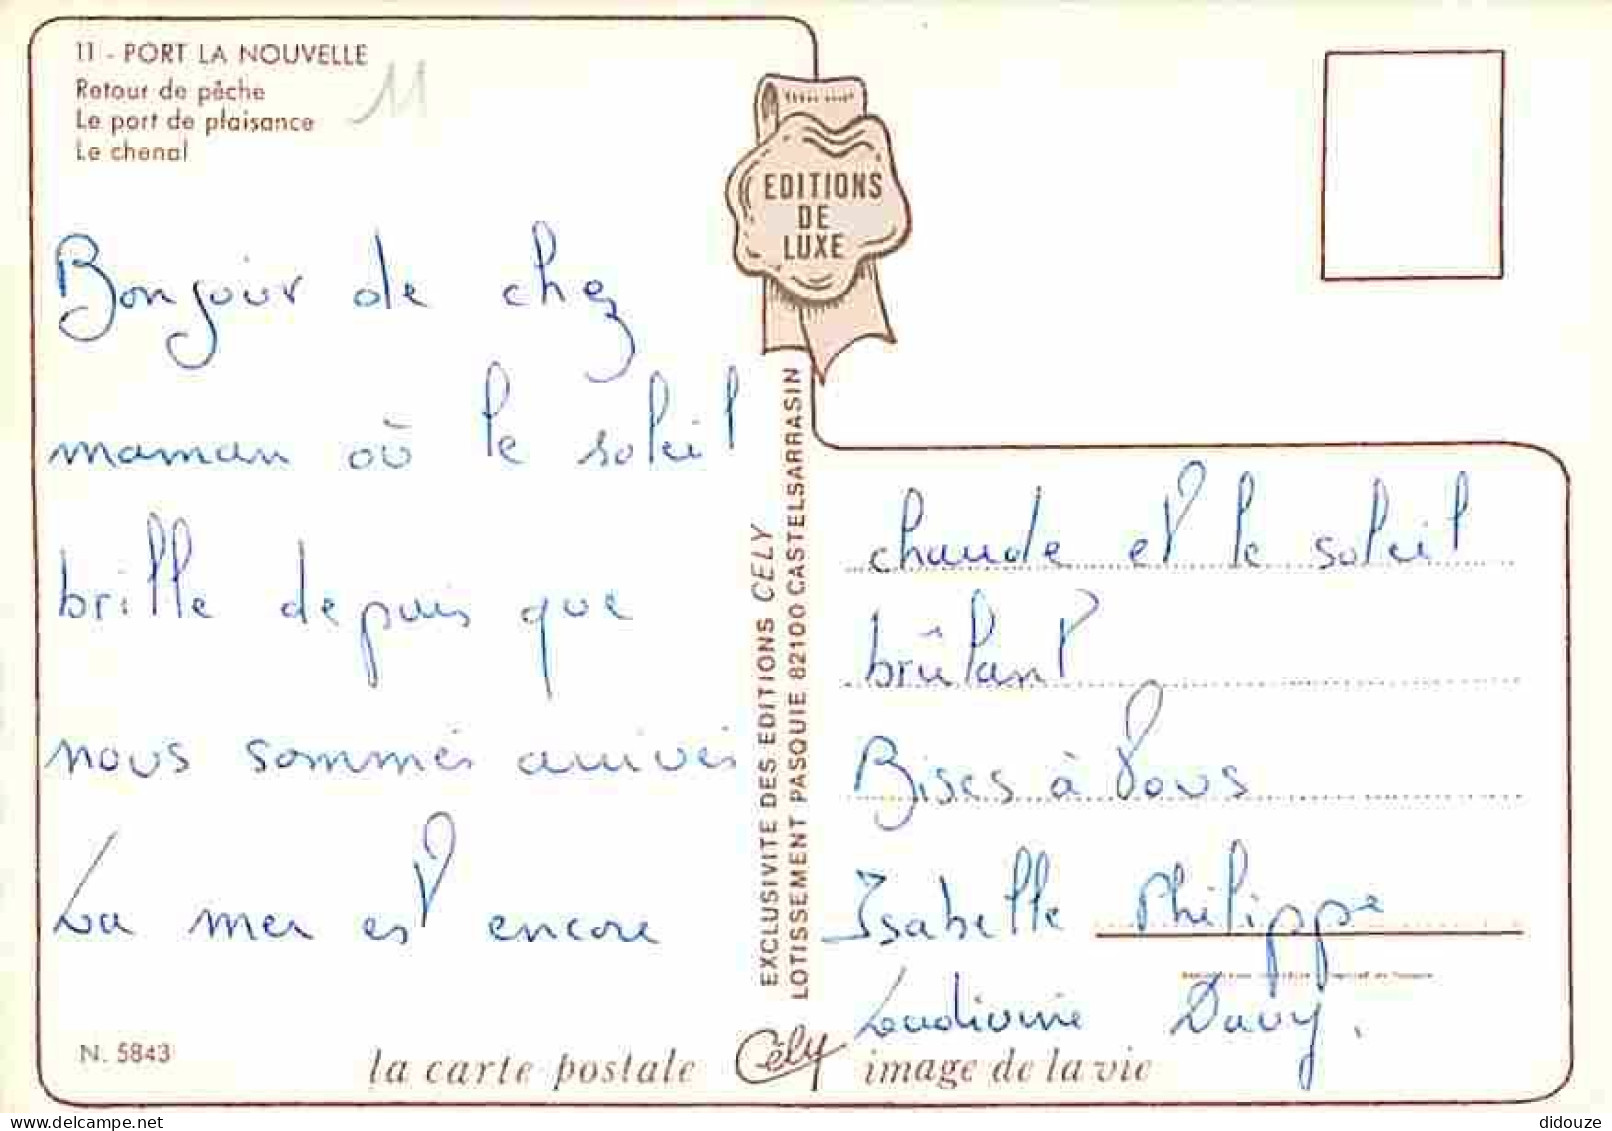 11 - PORT LA NOUVELLE
Retour de pêche
Le port de plaisance
Le chenal
11
EDITIONS
DE
LUXE
Bonjour de chez
maman où le soleil
brille depuis que
nous sommes arrivés
La mer est encore
chaude et le soleil
brûlant
Bises à Tous
Isabelle Philippe
Ludivine Davy.
EXCLUSIVITE DES EDITIONS CELY
LOTISSEMENT PASQUIE 82100 CASTELSARRASIN
N. 5843
la carte postale Cély image de la vie
didouze